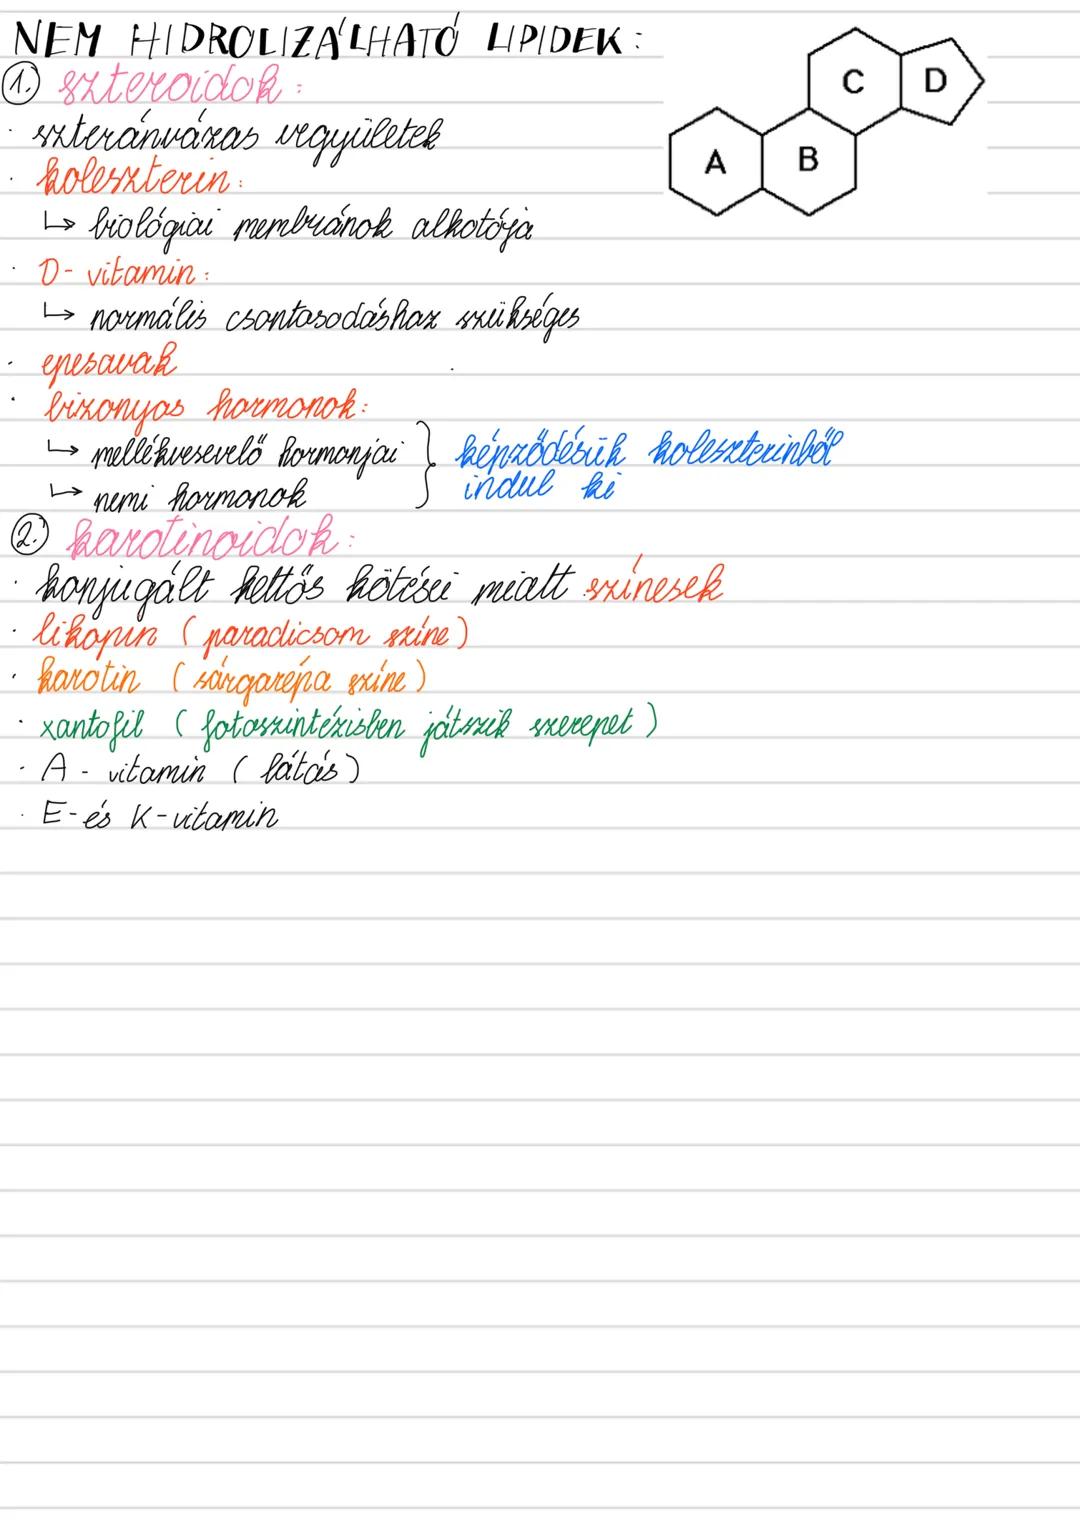 NEM HIDROLIZÁLHATÓ LIPIDEK:
1. szteroidok:
· szteránvázas vegyületek
· koleszterin:
↳ biológiai membránok alkotója
· D-vitamin:
↳ normális csontosodáshoz szükséges
· epesavak
· bizonyos hormonok:
↳ mellékvesevelő hormonjai } képződésük koleszterinből
↳ nemi hormonok indul ki
2. karotinoidok:
· konjugált kettős kötései miatt színesek
· likopin (paradicsom színe)
· karotin (sárgarépa színe)
· xantofil (fotoszintézisben játszik szerepet)
· A - vitamin (látás)
· E-és K-vitamin
A
B
C
D